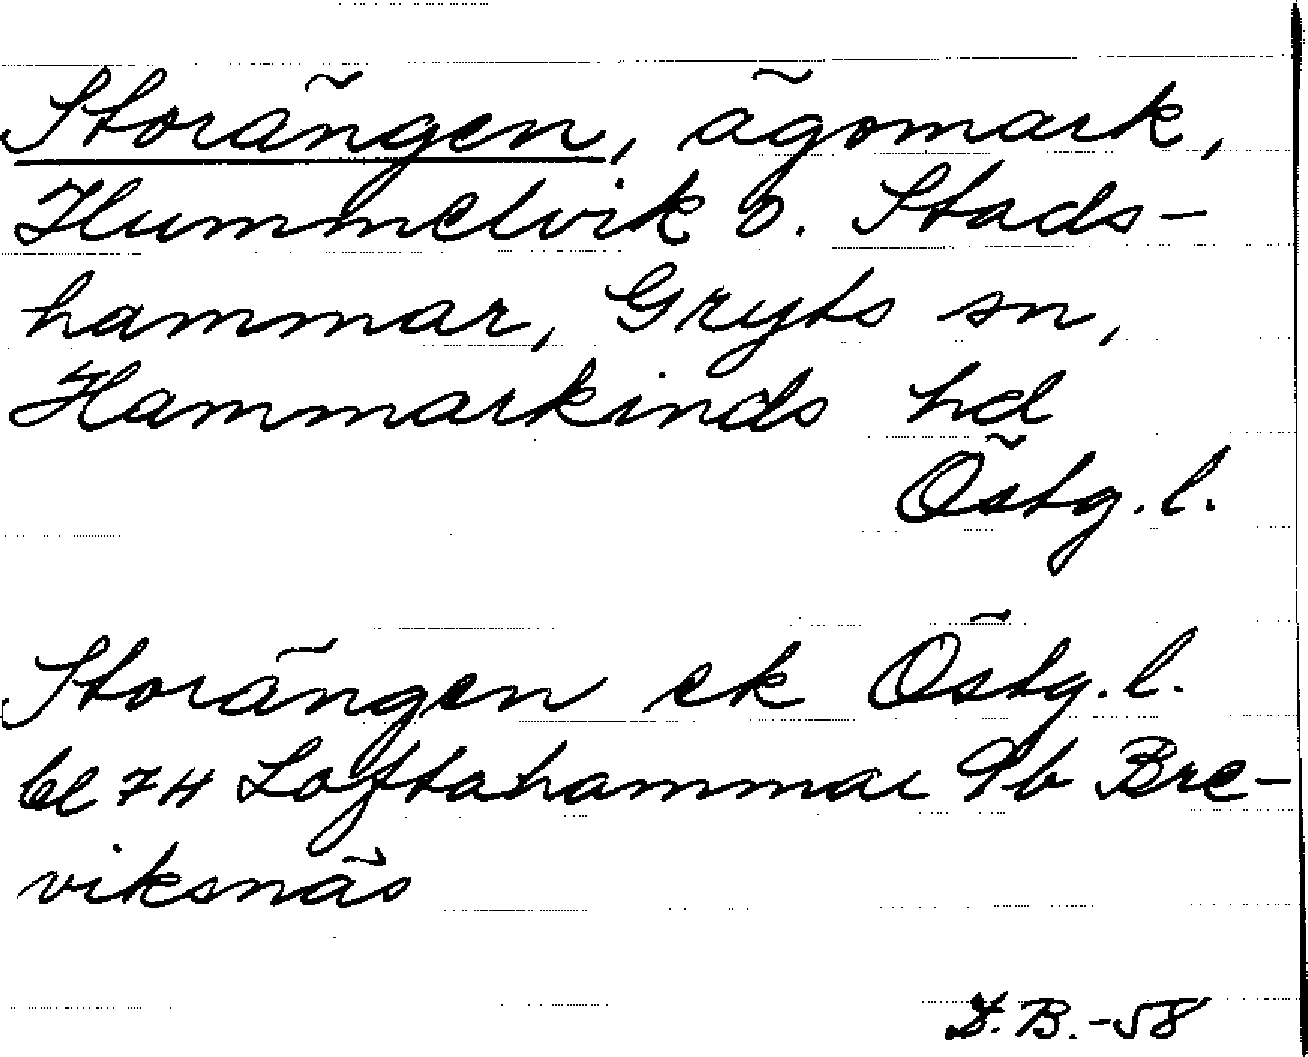 Storängen, ägomark,
Hummelvik o. Stads-
hammar, Gryts sn,
Hammarkinds hd
Östg. l.
Storängen ek Östg. l.
bl 74 Loftahammar 9b Bre-
viksnäs
D. B. -58